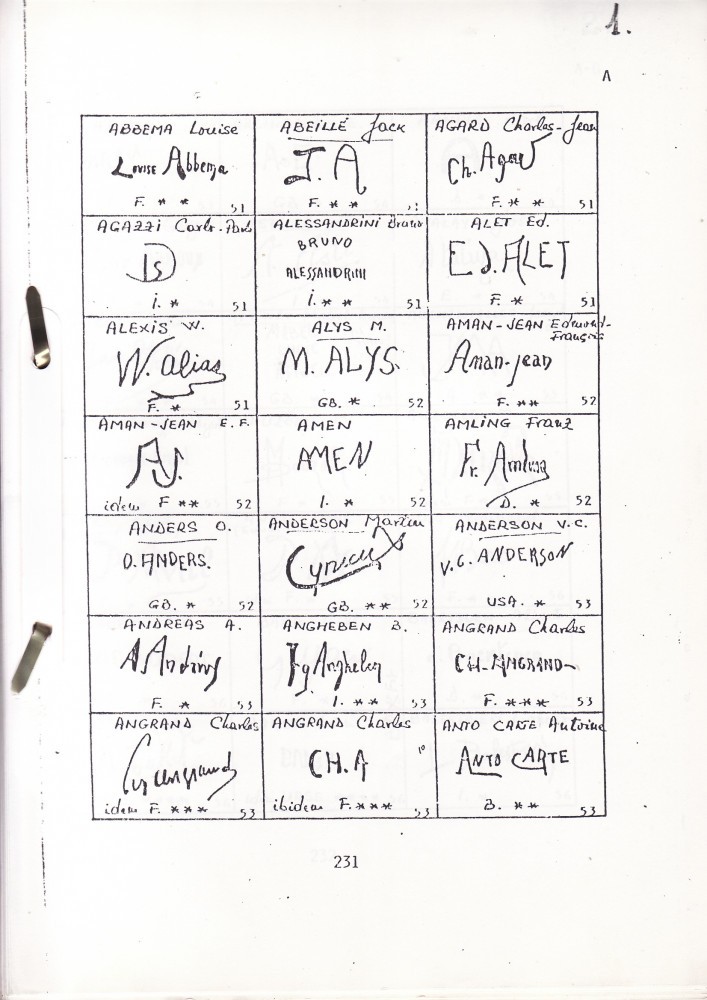 1.
A
ABBEMA Louise
Louise Abbema
F. * *
51
ABEILLÉ Jack
J. A
F. * *
AGARD Charles-Jean
Ch. Agard
F. * *
51
AGAZZI Carlo-Paolo
I. *
51
ALESSANDRINI Bruno
BRUNO
ALESSANDRINI
I. * *
51
ALET Ed.
Ed. ALET
F. *
51
ALEXIS W.
W. alias
F. *
51
ALYS M.
M. ALYS.
GB. *
52
AMAN-JEAN Edmond-
François
Aman-Jean
F. **
52
AMAN-JEAN E. F.
AJ.
idem F **
52
AMEN
AMEN
I. *
52
AMLING Franz
Fr. Amling
D. *
52
ANDERS O.
O. ANDERS.
GB. *
52
ANDERSON Martin
Cynicus
GB. **
52
ANDERSON V.C.
V.C. ANDERSON
USA. *
53
ANDREAS A.
F. *
53
ANGHEBEN B.
Angheben
I. **
53
ANGRAND Charles
CH. ANGRAND
F. ***
53
ANGRAND Charles
angrand
idem F. ***
53
ANGRAND Charles
CH. A
ibidem F. ***
53
ANTO CARTE Antoine
ANTO CARTE
B. **
53
231